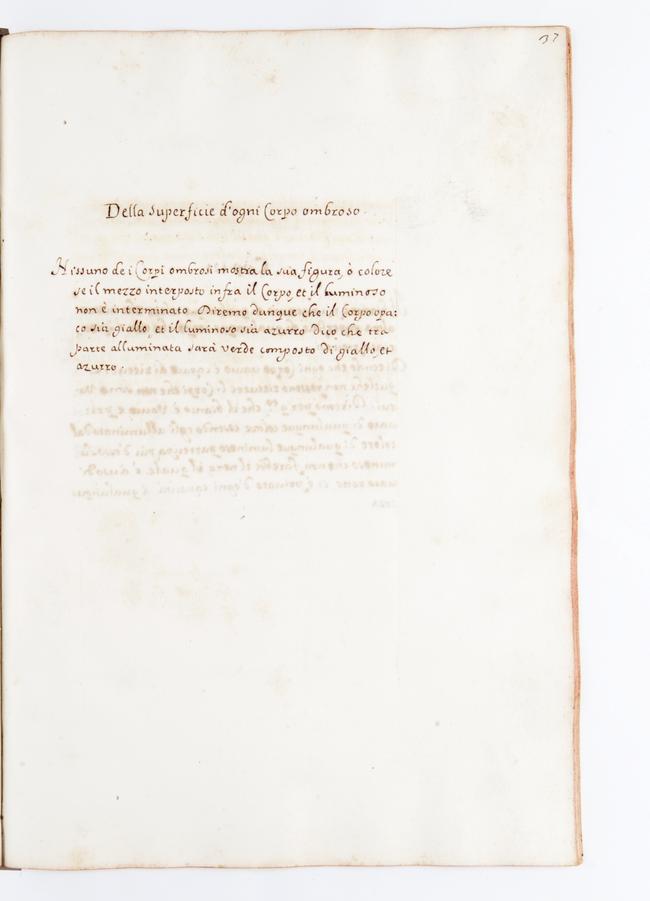 37
Della superficie d'ogni Corpo ombroso.
Nissuno de i Corpi ombrosi mostra la sua figura, ò colore
se il mezzo interposto infra il Corpo, et il luminoso
non è interminato. Diremo dunque che il Corpo opa:
co sia giallo, et il luminoso sia azurro Dico che tra
parte alluminata sarà verde composto di giallo, et
azurro.